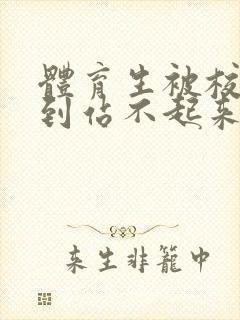 體育生被校
到佔不起来
来生非籠中